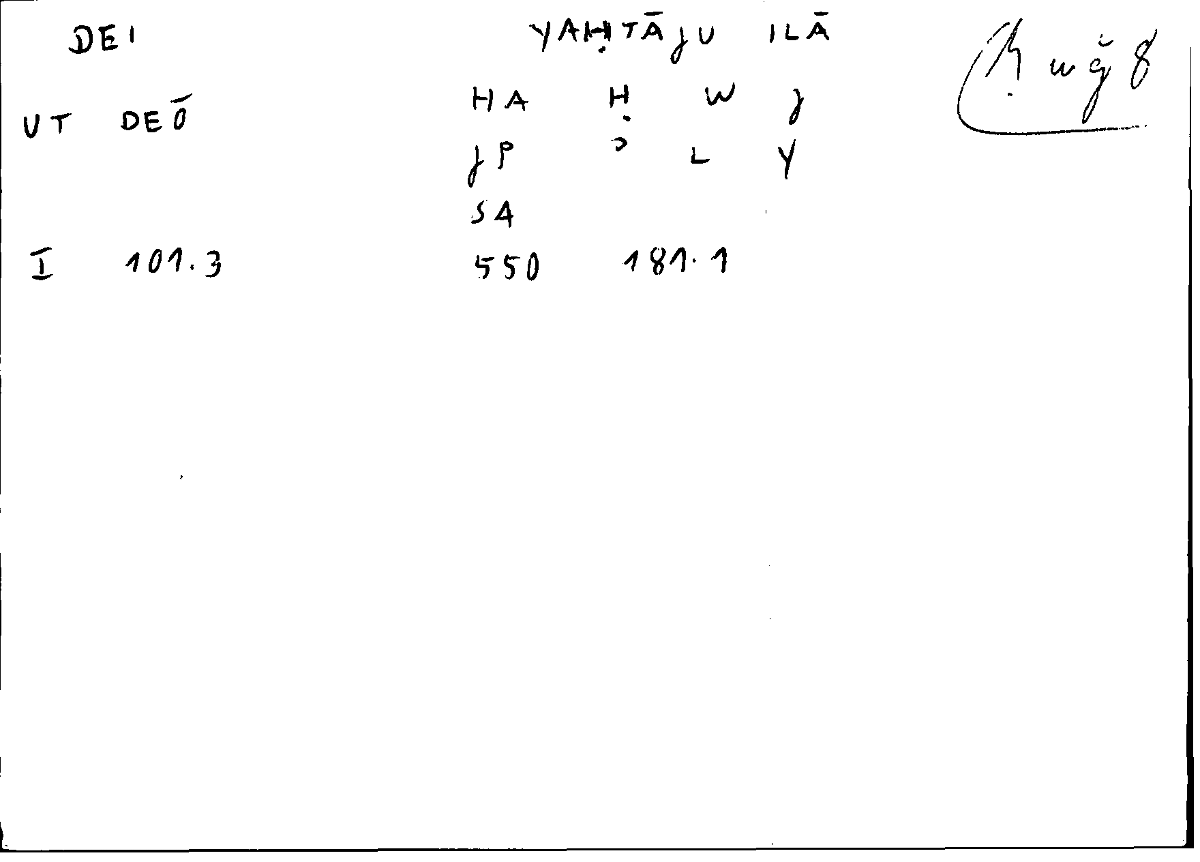 DEI YAḤTĀJU ILĀ
ḥwǧ 8
UT DEŌ HA Ḥ W J
JP ʾ L Y
SA
I 101.3 550 181.1